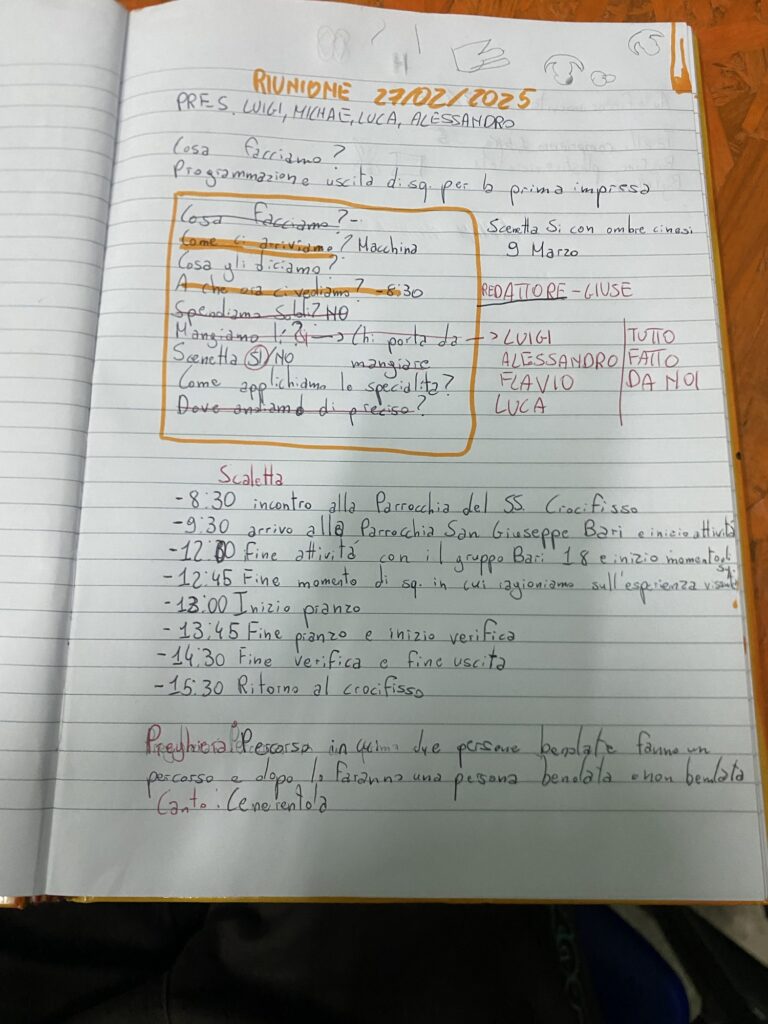 RIUNIONE 27/02/2025
PRES. LUIGI, MICHAE, LUCA, ALESSANDRO
Cosa facciamo?
Programmazione uscita di sq. per la prima impresa
Cosa facciamo? -
Come ci arriviamo? Macchina
Cosa gli diciamo?
A che ora ci vediamo? - 8:30
Spendiamo Soldi? NO
Mangiamo lì? Sì → Chi porta da mangiare
Scenetta SI/NO
Come applichiamo le specialità?
Dove andiamo di preciso?
Scenetta Si con ombre cinesi
9 Marzo
REDATTORE - GIUSE
→ LUIGI TUTTO
ALESSANDRO FATTO
FLAVIO DA NOI
LUCA
Scaletta
- 8:30 incontro alla Parrocchia del SS. Crocifisso
- 9:30 arrivo alla Parrocchia San Giuseppe Bari e inizio attività
- 12:00 Fine attivitá con il gruppo Bari 18 e inizio momento di sq
- 12:45 Fine momento di sq. in cui ragioniamo sull'esperienza vissuta
- 13:00 Inizio pranzo
- 13:45 Fine pranzo e inizio verifica
- 14:30 Fine verifica e fine uscita
- 15:30 Ritorno al crocifisso
Preghiera: Percorso in cui due persone bendate fanno un
percorso e dopo lo faranno una persona bendata e non bendata
Canto: Cenerentola